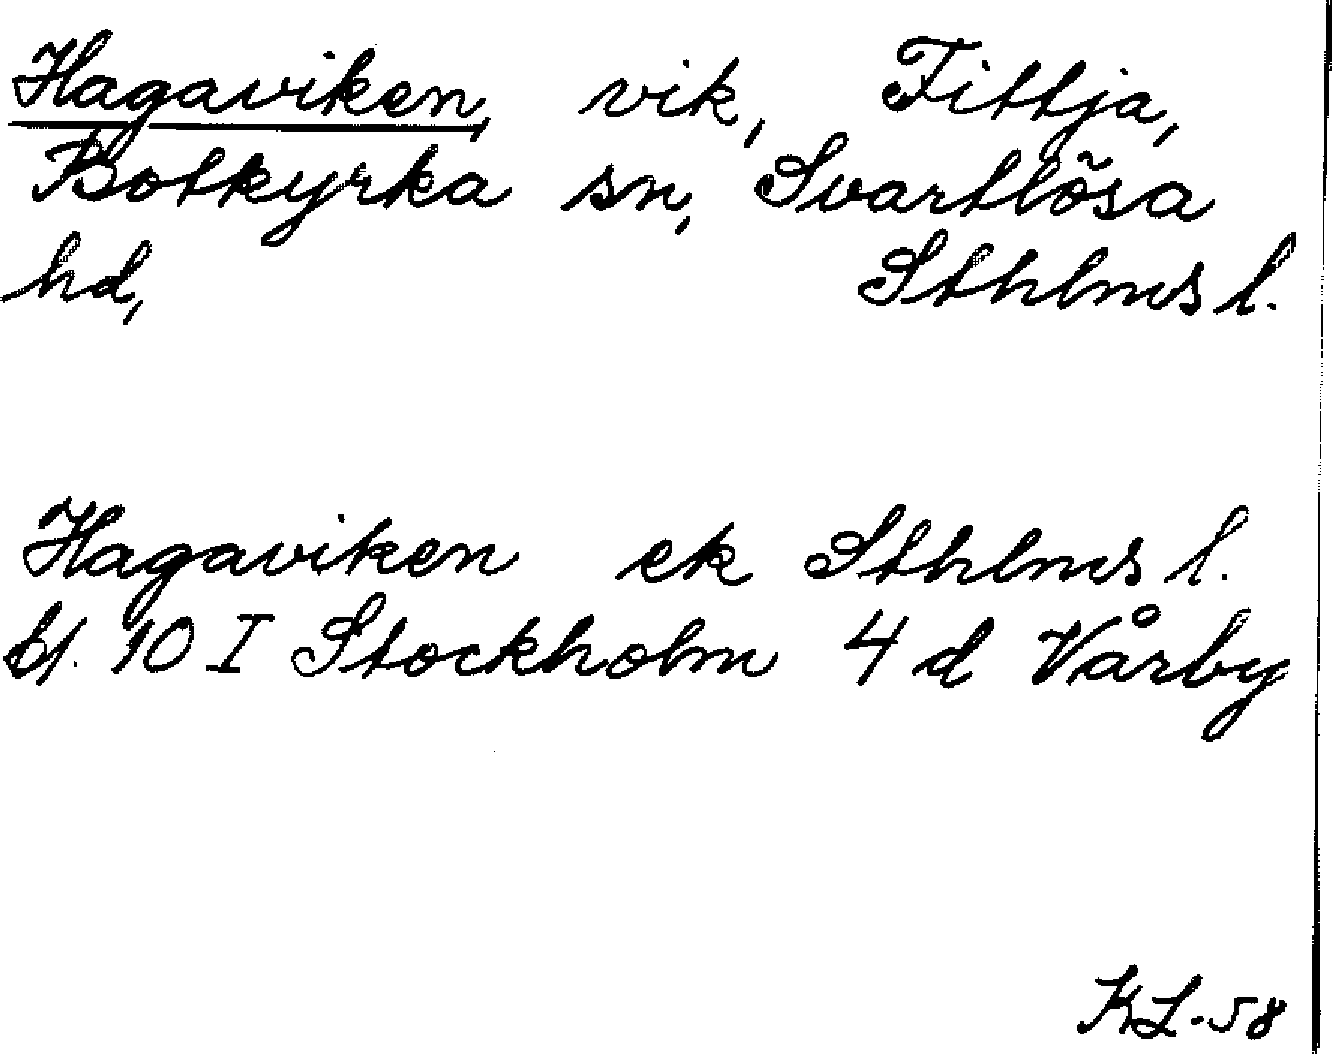 Hagaviken, vik, Fittja,
Botkyrka sn, Svartlösa
hd, Sthlms l.
Hagaviken ek Sthlms l.
bl. 10 I Stockholm 4 d Vårby
KL-58